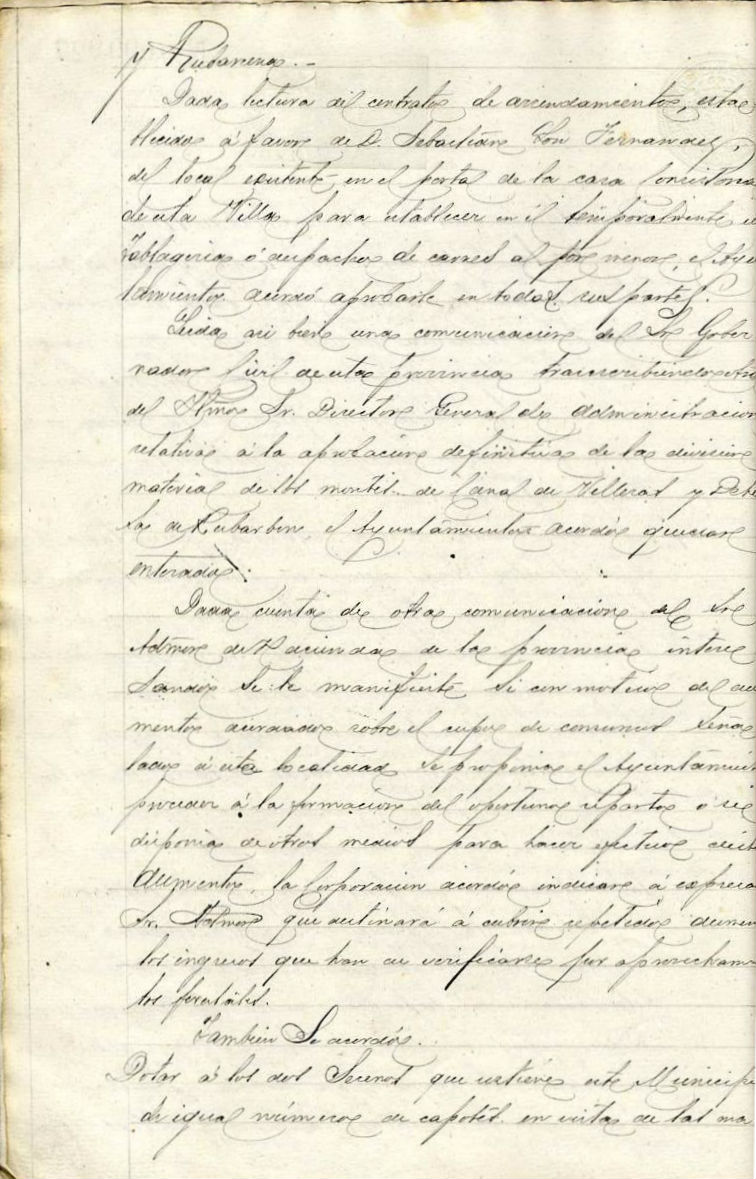 y Rubarcena. -
Dada lectura del contrato de arrendamiento, esta
blecido á favor de D. Sebastián Con Fernandez,
del local existente en el portal de la casa Consistoria
de esta Villa para establecer en él temporalmente u
Tablageria ó despacho de carnes al por menor, el Ayu
tamiento acordó aprobarle en todas sus partes.
Leida asi bien una comunicacion del Sr Gober
nador Civil de esta provincia transcribiendo otra
del Ilmo Sr. Director General de Administracion
relativa á la aprobacion definitiva de la division
material de los montes de Canal de Villeras y Dehe
sa de Rubarbon, el Ayuntamiento acordó quedar
enterado.
Dada cuenta de otra comunicacion del Sr
Admor de Hacienda de la provincia intere
sando se le manifieste si con motivo del au
mento acordado sobre el cupo de consumos sena
lado á esta localidad se proponia el Ayuntamien
proceder á la formacion del oportuno reparto ó si
disponia de otros medios para hacer efectivo dich
aumento, la Corporacion acordó indicar á expresa
Sr. Admor que destinará á cubrir repetido aumen
los ingresos que han de verificarse por aprovecham
tos forestales.
Tambien Se acordó.
Dotar á los dos Serenos que sostiene este Municipi
de igual número de capotes en vista de las ma